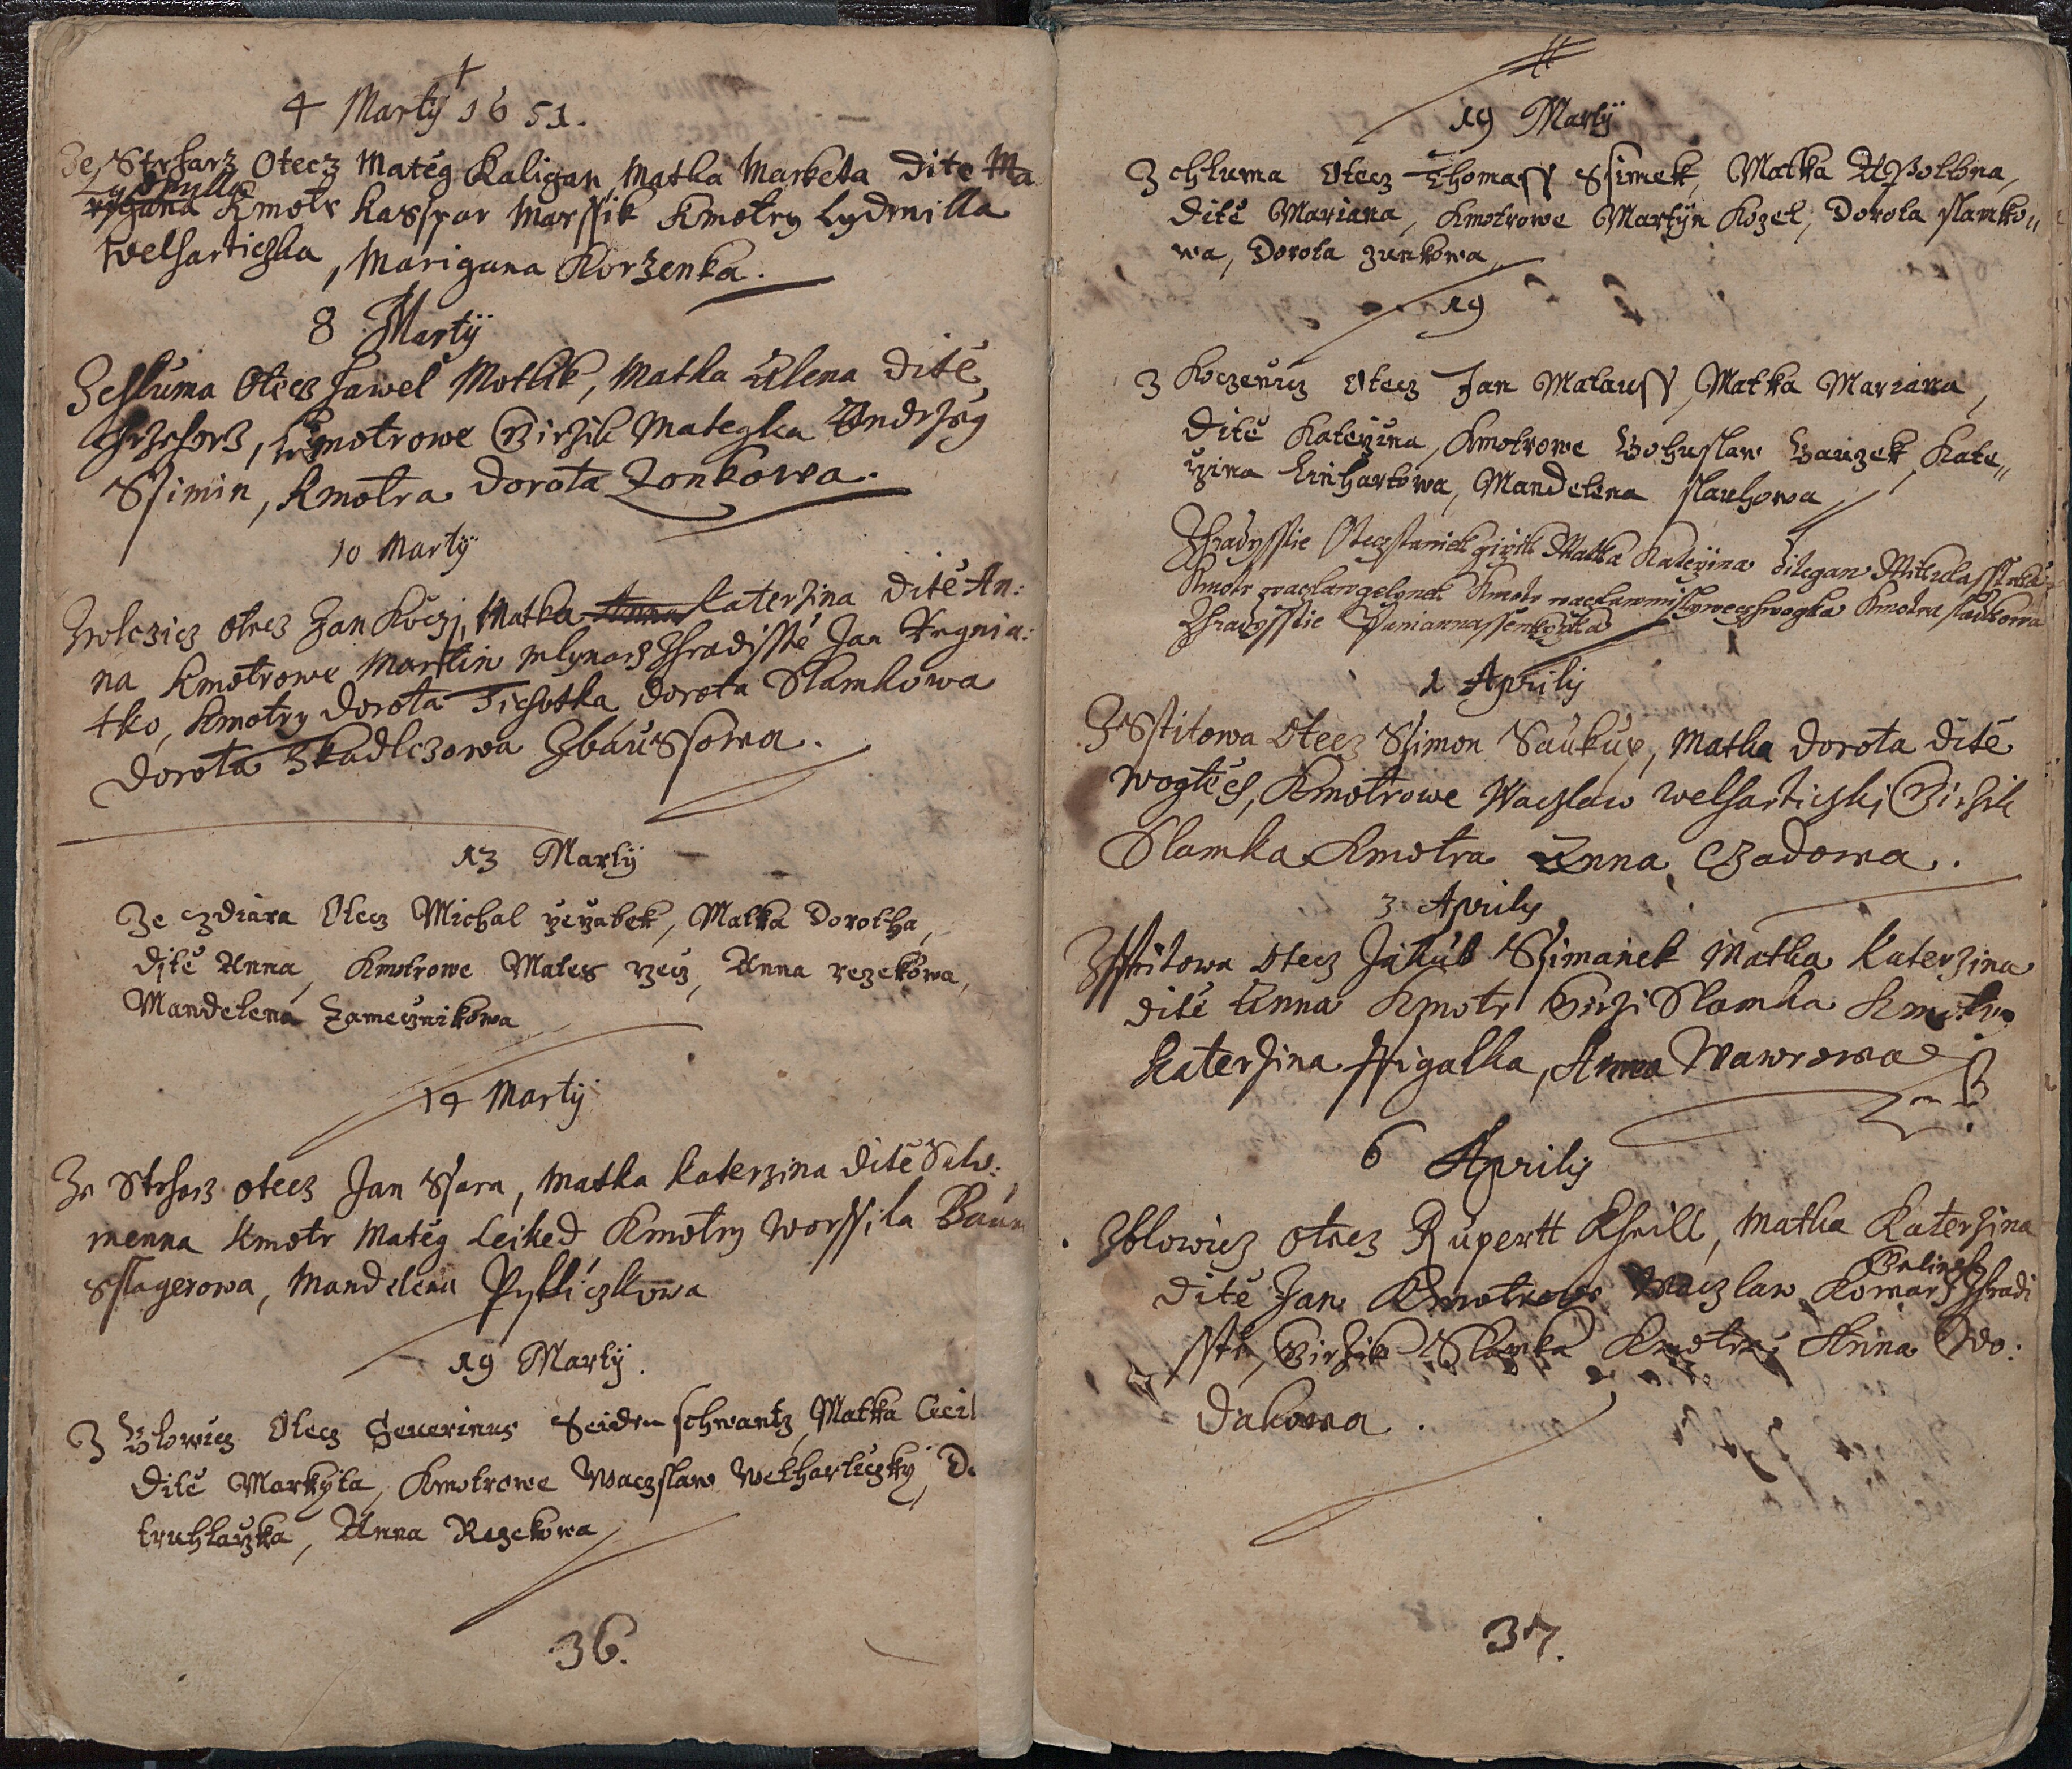 4 Martÿ 1651.
Ze Strharz Otecz Matěg Kaligan, Matka Marketa Dite Ma
Lydmylla
rygana Kmotr Kasspar Marssik Kmotry Lydmilla
Welharticzka, Marigana Korzenka.
8 Martÿ
Zchluma Otecz Hawel Motlik, Matka Elena Dite
Hrzehorz, Kmotrowe Girzik Mategka Ondrzeg
Ssimin, Kmotra Dorota Zonkowa.
10 Martÿ
Zwlczicz Otecz Jan Koczj, Matka Anna Katerzina Ditě An:
na Kmotrowe Martin mlynarz Zhradisstě Jan Trgnia:
tko, Kmotry Dorota Tichotka Dorota Slamkowa
Dorota Skadlczowa Zbaussowa.
13 Martÿ
Ze czdiara Otecz Michal rzerzabek, Matka Dorotha,
Ditě Anna, Kmotrowe Mates rzecz, Anna rezekowa,
Mandelena Zamecznikowa
14 Martÿ
Ze Strharz otecz Jan Ssara, Matka Katerzina Ditě Salo:
menna Kmotr Matěg Leiked Kmotry Worssila Baum
sslagerowa, Mandelena Pytliczkowa
19 Martÿ.
Z Blowicz Otecz Seuerinus Seidenschwantz, Matka Cecil
Ditě Markyta, Kmotrowe Waczslaw Welharticzky, Do
truhlarzka, Anna Rezekowa
36.
19 Martÿ
Z chluma Otecz Thomass Ssimek, Matka Apollona,
Ditě Mariana, Kmotrowe Martÿn Kozel, Dorota slamko„
wa, Dorota zunkowa,
19
Z Koczenicz Otecz Jan Matauss, Matka Mariana,
Ditě Katerzina, Kmotrowe Bohuslaw Bauzek, Kate„
rzina Linhartowa, Mandelena slauhowa
Zhradysstie Otecz staniek girzik Matka Katerzina ditegan Mikulass
Kmotr waczlaw gelynek Kmotr Kmotra slaukowa
Zhradysstie
1 Aprilÿ
ZSstitowa Otecz Ssimon Saukup, Matka Dorota Ditě
Wogtěch, Kmotrowe Waczlaw Welharticzkj Girzik
Slamka Kmotra Anna Czadowa.
3 Aprilÿ
Zsstitowa Otecz Jakub Ssimanek Matka Katerzina
Ditě Anna Kmotr Girzi Slamka Kmotra
Katerzina Ssigalka, Anna Wawrowa
6 Aprilÿ
Zblowicz Otecz Rupertt Khrill, Matka Katerzina
Ditě Jan Kmotrowe Waczlaw Komarz Zhradi
sstě, Girzik Slamka Kmotra Anna Wo:
dakowa.
37.